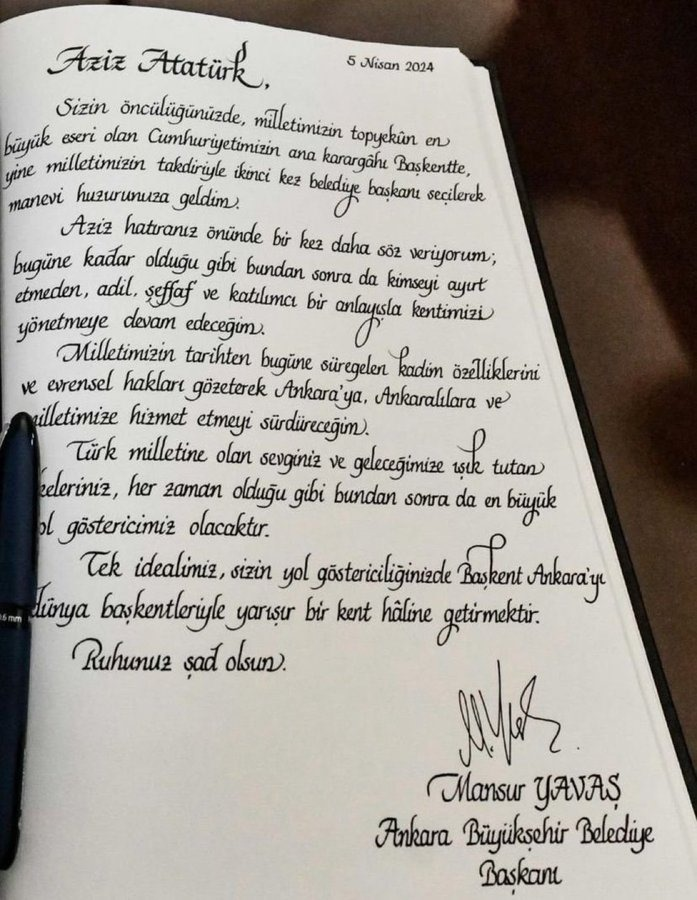 Aziz Atatürk,
5 Nisan 2024
Sizin öncülüğünüzde, milletimizin topyekûn en
büyük eseri olan Cumhuriyetimizin ana karargâhı Başkentte,
yine milletimizin takdiriyle ikinci kez belediye başkanı seçilerek
manevi huzurunuza geldim.
Aziz hatıranız önünde bir kez daha söz veriyorum;
bugüne kadar olduğu gibi bundan sonra da kimseyi ayırt
etmeden, adil, şeffaf ve katılımcı bir anlayışla kentimizi
yönetmeye devam edeceğim.
Milletimizin tarihten bugüne süregelen kadim özelliklerini
ve evrensel hakları gözeterek Ankara'ya, Ankaralılara ve
milletimize hizmet etmeyi sürdüreceğim.
Türk milletine olan sevginiz ve geleceğimize ışık tutan
keleriniz, her zaman olduğu gibi bundan sonra da en büyük
ol göstericimiz olacaktır.
Tek idealimiz, sizin yol göstericiliğinizde Başkent Ankara'yı
dünya başkentleriyle yarışır bir kent hâline getirmektir.
Ruhunuz şad olsun.
M. Yavaş
Mansur YAVAŞ
Ankara Büyükşehir Belediye
Başkanı
0.6 mm